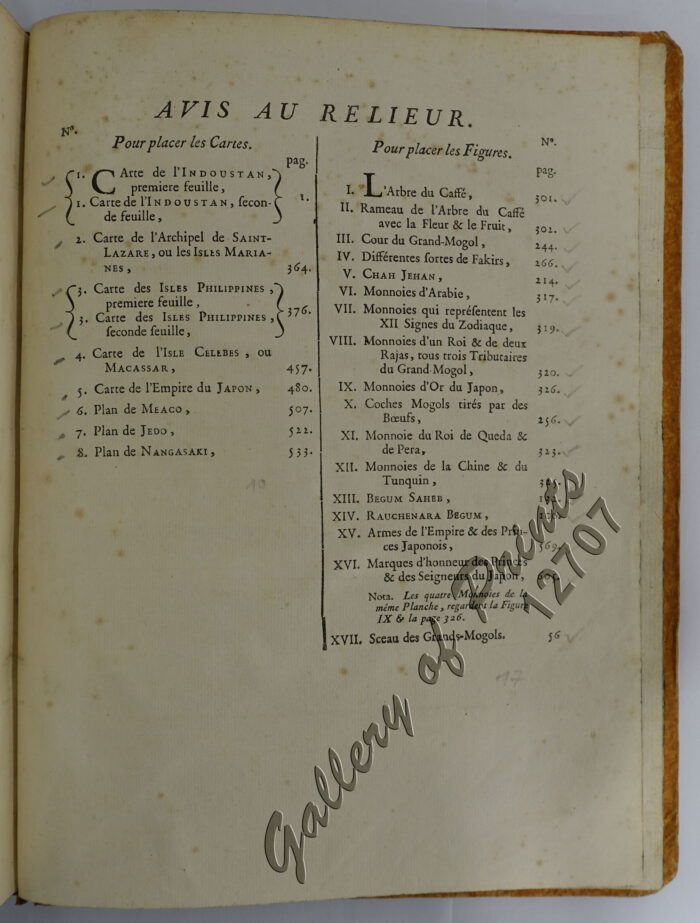 AVIS AU RELIEUR.
Nº.
Pour placer les Cartes.
pag.
1. CArte de l'INDOUSTAN,
premiere feuille,
1. Carte de l'INDOUSTAN, secon-
de feuille,
1.
2. Carte de l'Archipel de SAINT-
LAZARE, ou les ISLES MARIA-
NES, 364.
3. Carte des ISLES PHILIPPINES,
premiere feuille,
3. Carte des ISLES PHILIPPINES,
seconde feuille,
376.
4. Carte de l'ISLE CELEBES, ou
MACASSAR, 457.
5. Carte de l'Empire du JAPON, 480.
6. Plan de MEACO, 507.
7. Plan de JEDO, 522.
8. Plan de NANGASAKI, 533.
10
Pour placer les Figures.
Nº.
pag.
I. L'Arbre du Caffé, 301.
II. Rameau de l'Arbre du Caffé
avec la Fleur & le Fruit, 302.
III. Cour du Grand-Mogol, 244.
IV. Différentes sortes de Fakirs, 266.
V. CHAH JEHAN, 214.
VI. Monnoies d'Arabie, 317.
VII. Monnoies qui représentent les
XII Signes du Zodiaque, 319.
VIII. Monnoies d'un Roi & de deux
Rajas, tous trois Tributaires
du Grand-Mogol, 320.
IX. Monnoies d'Or du Japon, 326.
X. Coches Mogols tirés par des
Bœufs, 256.
XI. Monnoie du Roi de Queda &
de Pera, 323.
XII. Monnoies de la Chine & du
Tunquin,
XIII. BEGUM SAHEB,
XIV. RAUCHENARA BEGUM,
XV. Armes de l'Empire & des Prin-
ces Japonois, 569.
XVI. Marques d'honneur des Princes
& des Seigneurs du Japon,
NOTA. Les quatre Monnoies de la
même Planche, regardent la Figure
IX & la page 326.
XVII. Sceau des Grands-Mogols. 56
17
Gallery of Prints
12707